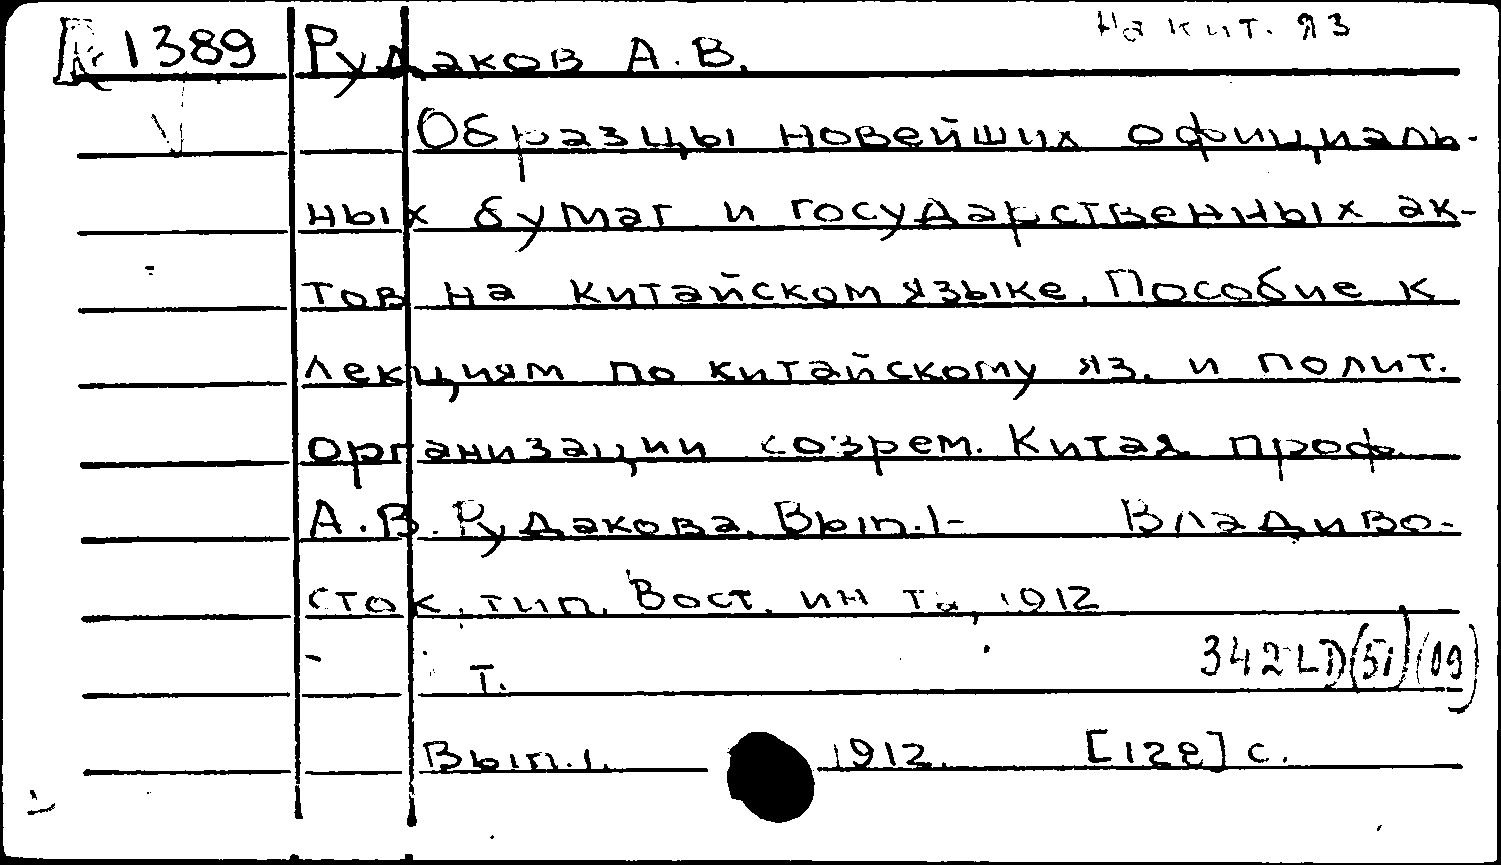 На кит. яз
1389 Рудаков А.В.
Образцы новейших официаль-
ных бумаг и государственных ак-
тов на китайском языке. Пособие к
лекциям по китайскому яз. и полит.
организации соврем. Китая проф.
А.В. Рудакова. Вып.1- Владиво-
сток, тип. Вост. ин та, 1912
Т.
Вып.1. 1912. с.